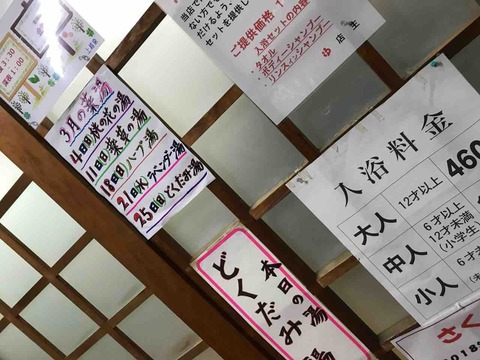 3:30
深夜1:00
3月の薬湯
11日(日)薬草の湯
18日(日)ハーブ湯
21日(水)ラベンダー湯
25日(日)どくだみ湯
当店で
ない方で
だけるよう、
セットを提供し
ご提供価格 1
・タオル
・ボデーシャンプー
・リンスインシャンプー
ゆ 店主
本日の湯
どくだみ湯
入浴料金
大人 12才以上 460
中人 6才以上
12才未満
(小学生
小人 6才
さく